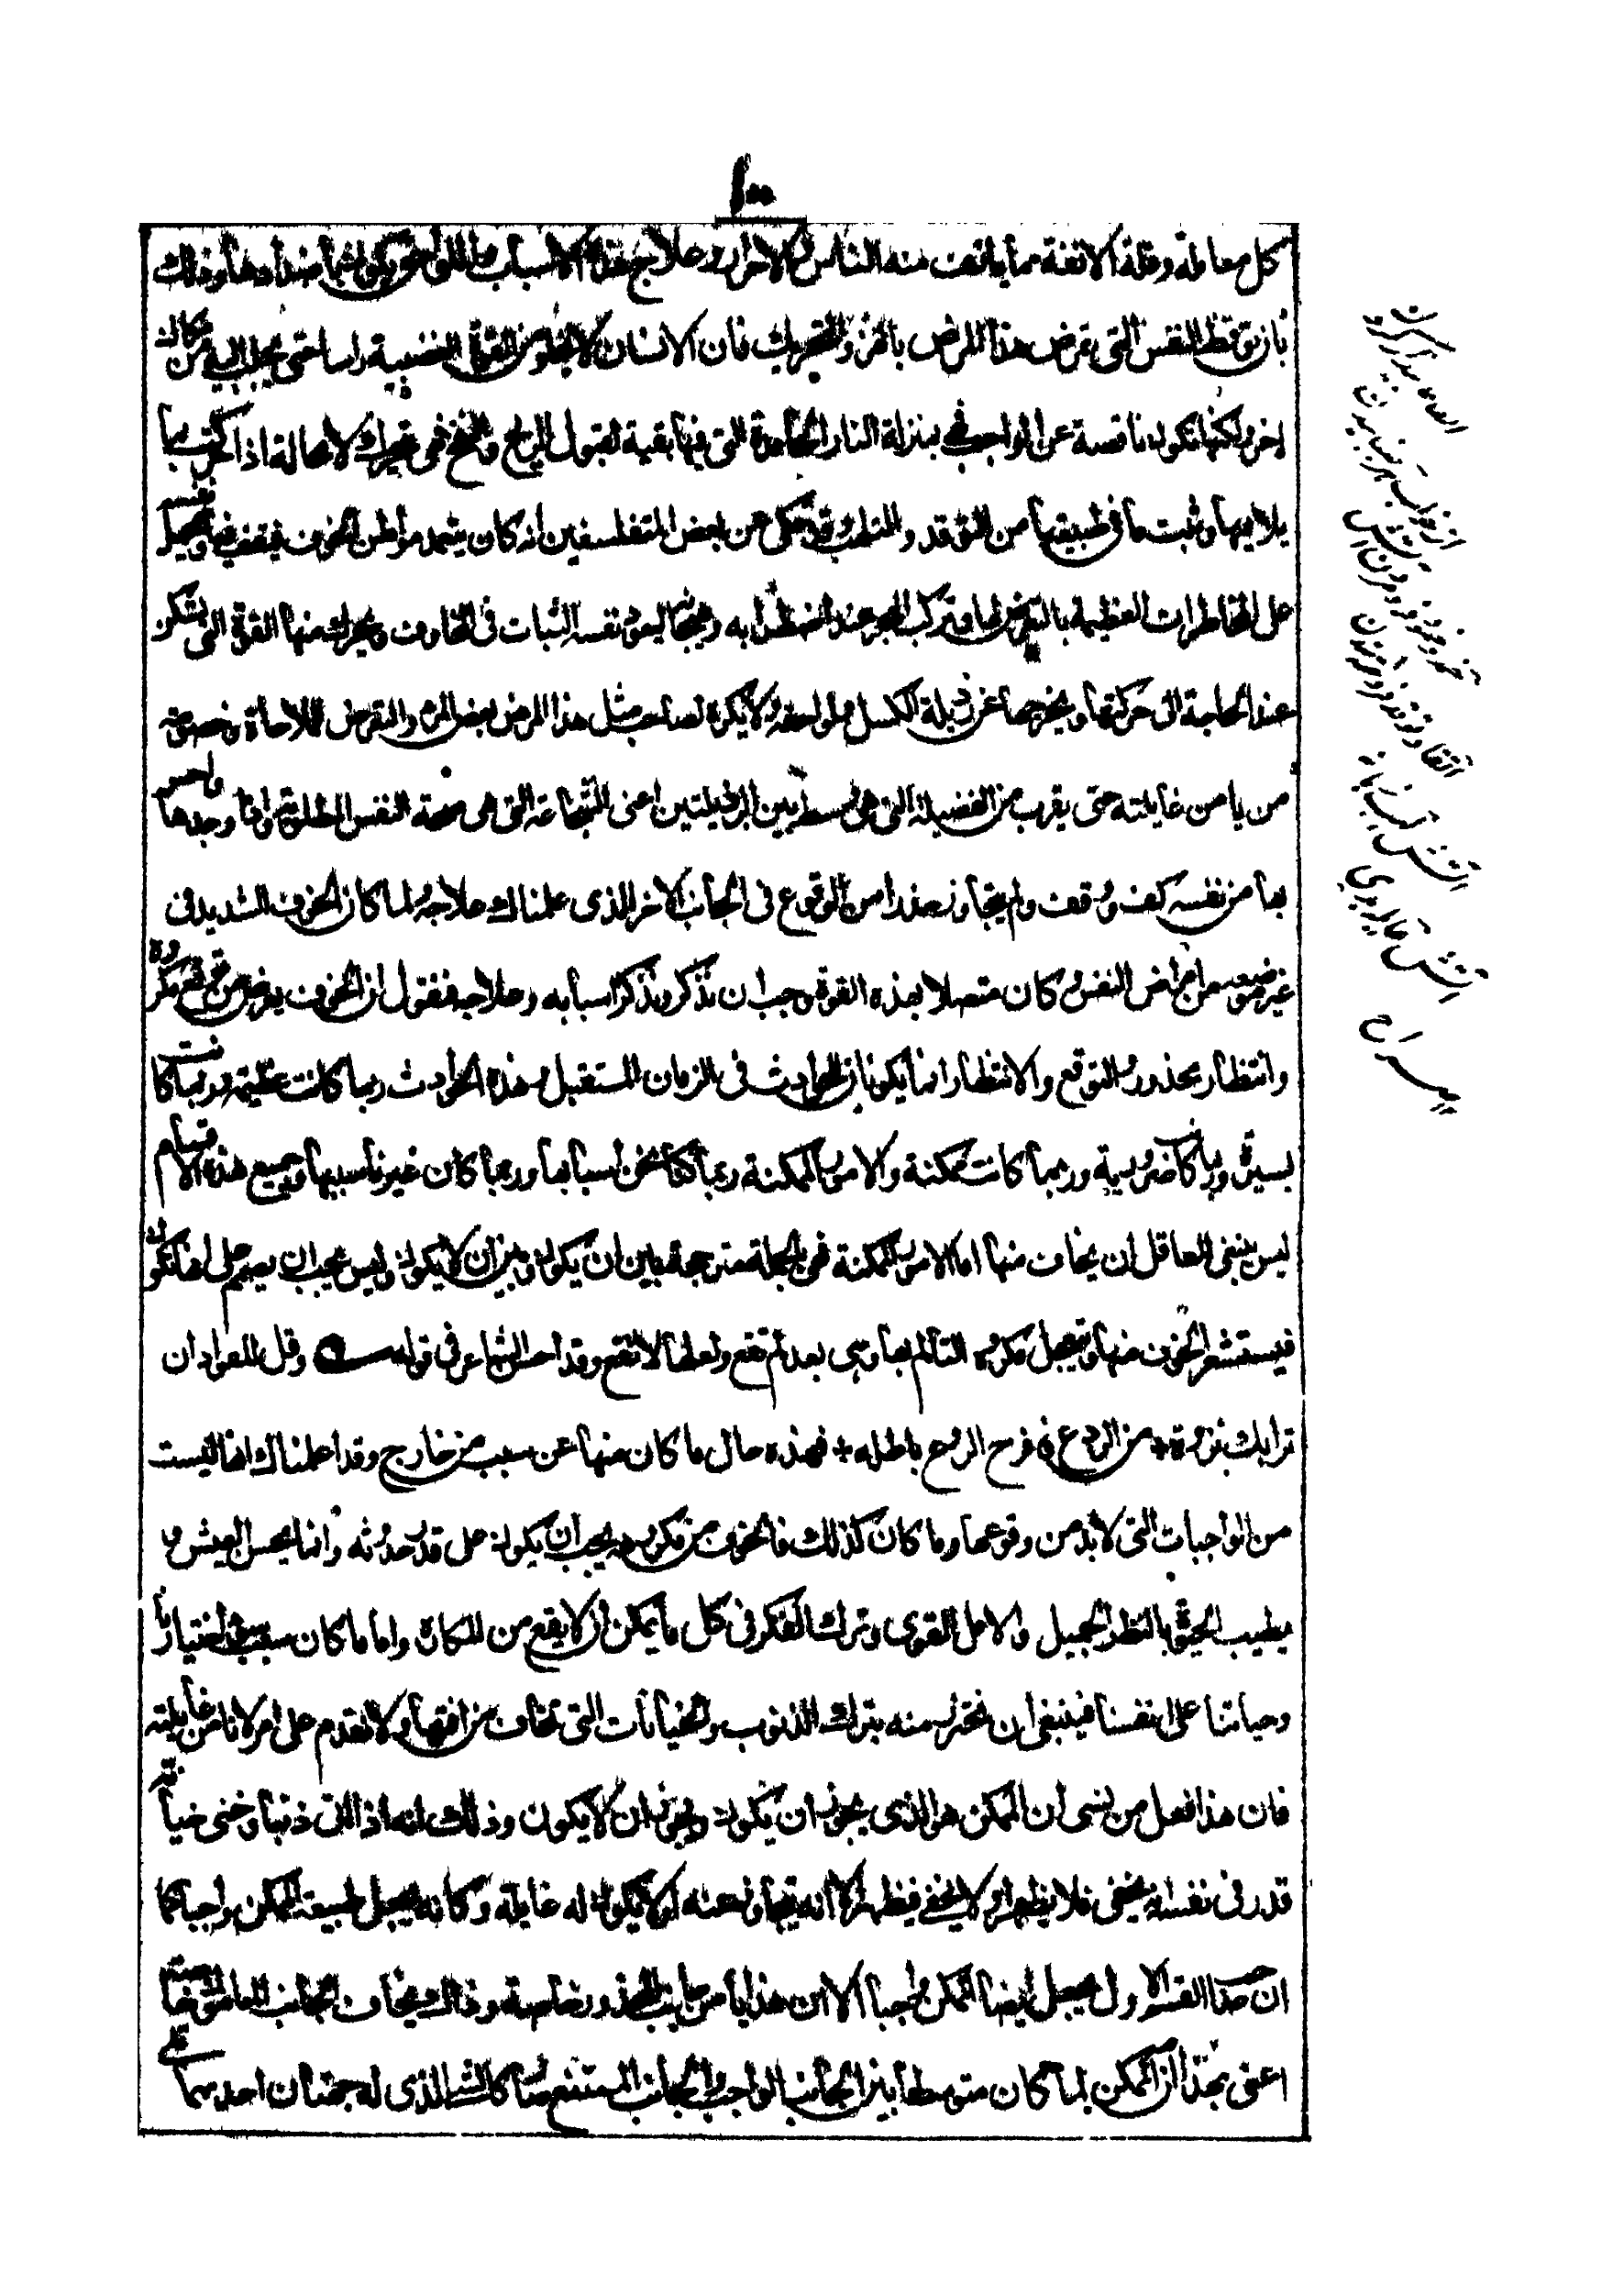 ١٠٠
كل معاملة وقلة الانفة مما يانف منه الناس والاحرار وعلاج هذه الاسباب واللواحق يكون باضدادها وذلك
بان توقظ النفس التي تمرض هذا المرض بالهز والتحريك فان الانسان لا يخلو من القوة الغضبية راسا حتى يجلب اليه من مكان
اخر ولكنها تكون ناقصة عن الواجب فهي بمنزلة النار الخامدة التي فيها بقية لقبول الريح والنفخ فهي تتحرك لا محالة اذا حركت بما
يلايمها وتبعث ما في طبيعتها من التوقد والتلهب وقد حكي عن بعض المتفلسفين انه كان يتعمد مواطن الخوف فيقف فيها ويحمل نفسه
على المخاطرات العظيمة بالتعرض لها ويركب البحر عند اضطرابه وهيجانه ليعود نفسه الثبات في المخاوف ويحرك منها القوة التي تسكن
عند الحاجة الى حركتها ويخرجها عن رذيلة الكسل ولواحقه ولا يكره لصاحب مثل هذا المرض بعض المراء والتعرض للملاحاة وخصومة
من يامن غايلته حتى يقرب من الفضيلة التي هي وسط بين الرذيلتين اعني الشجاعة التي هي صحة النفس المطلوبة فاذا وجدها واحس
بها من نفسه كف ووقف ولم يتجاوز حذرا من الوقوع في الجانب الاخر الذي علمناك علاجه ولما كان الخوف الشديد في
غير موضعه من امراض النفس وكان متصلا بهذه القوة وجب ان نذكره ونذكر اسبابه وعلاجه فنقول ان الخوف يعرض من توقع مكروه
وانتظار محذور والتوقع والانتظار انما يكونان للحوادث في الزمان المستقبل وهذه الحوادث ربما كانت عظيمة وربما كانت
يسيرة وربما كانت ضرورية وربما كانت ممكنة والامور الممكنة ربما كنا نحن اسبابها وربما كان غيرنا سببها وجميع هذه الاقسام
ليس ينبغي للعاقل ان يخاف منها اما الامور الممكنة فهي بالجملة مترجحة بين ان يكون وبين ان لا يكون وليس يجب ان يصمم على انها تكون
فيستشعر الخوف منها ويتعجل مكروه التالم بها وهي بعد لم تقع ولعلها لا تقع وقد احسن الشاعر في قوله وقل للفواد ان
ترا بك نزوة * من الروع افرخ الروع باطله * فهذه حال ما كان منها عن سبب من خارج وقد اعلمناك انها ليست
من الواجبات التي لا بد من وقوعها وما كان كذلك فالخوف من مكروهه يجب ان يكون على قدر حدوثه وانما يحسن العيش و
يطيب الحيوة بالظن الجميل والامل القوي وترك الفكر في كل ما يمكن ان لا يقع من المكاره واما ما كان سببه سوء اختيارنا
وجنايتنا على انفسنا فينبغي ان نحترس منه بترك الذنوب والجنايات التي نخاف من عواقبها ولا نقدم على امر لا نامن غايلته
فان هذا فعل من نسى ان الممكن هو الذي يجوز ان يكون ويجوز ان لا يكون وذلك انه اذا اتى ذنبا وجنى جناية
قدر في نفسه انه يخفى فلا يظهر او لا يخفى فيظهر الا انه يتجاوز عنه او لا يكون له غايلة وكانه يجعل طبيعة الممكن واجبا كما
ان صاحب القسم الاول يجعل ايضا الممكن واجبا الا ان هذا يامن جانب المحذور خاصة وذاك يخاف الجانب المامون خاصة
اعني بهذا ان الممكن لما كان متوسطا بين الجانب الواجب والجانب الممتنع صار كالشيء الذي له جهتان احديهما تلي